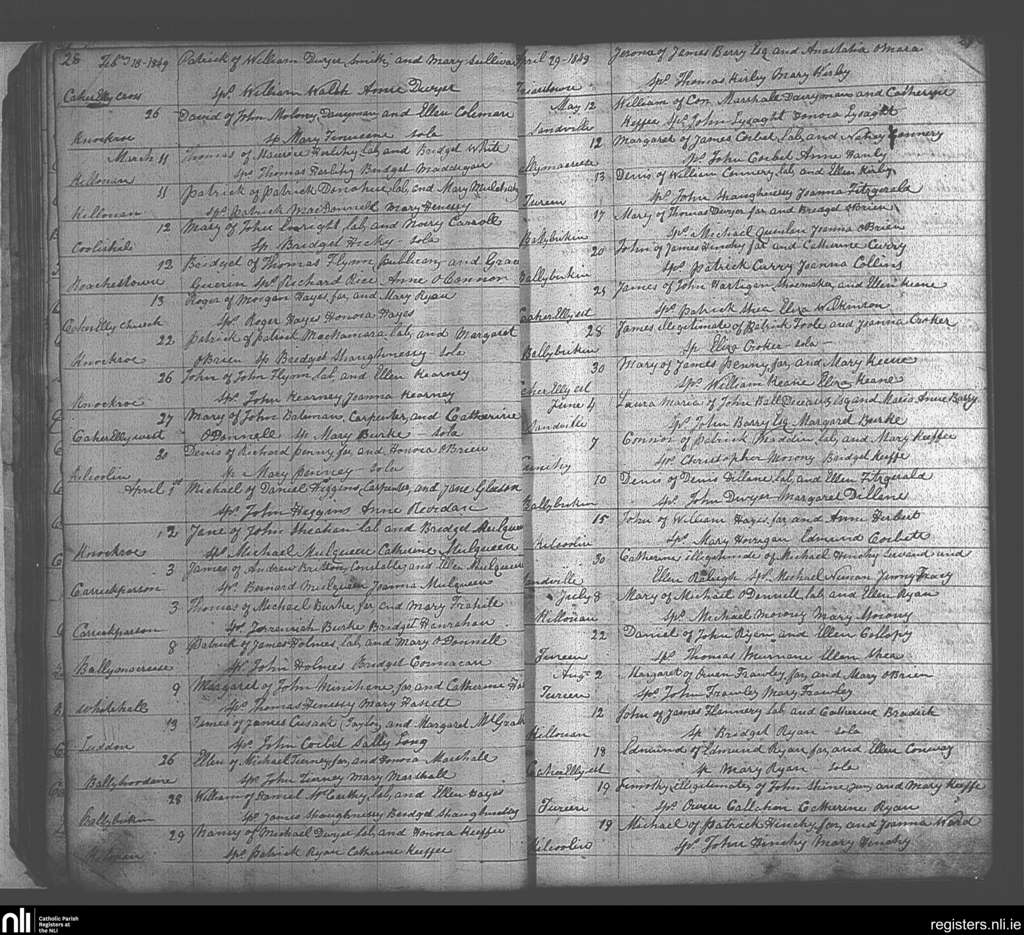 28 Feby 18-1849 Patrick of William Dwyer Smith, and Mary Sullivan
Caherelly cross Sps. William Walsh Anne Dwyer
26 David of John Molony, Dairyman and Ellen Colemare
Knockroe Sp Mary sola
March 11 Thomas of Maurice Hartihy lab, and Bridget White
Killonan Sps Thomas Bridget Maddigan
11 Patrick of Patrick Donohue, lab, and Mary Mulcahy
Killonan Sps. Patrick MacDonnell Mary Henessy
12 Mary of John Enright lab, and Mary Carroll
Coolishal Sp. Bridget Hicky - sola
12 Bridget of Thomas Flynn publican, and Grace
Roachestown Guerin Sps. Richard Rice Anne O'Connor
13 Roger of Morgan Hayes, far, and Mary Ryan
Caherelly church Sps. Roger Hayes Honora Hayes
22 Patrick of Patrick MacNamara, lab, and Margaret
Knockroe O'Brien Sp Bridget Shaughnessy sola
26 John of John Flynn lab, and Ellen Kearney
Knockroe Sps. John Kearney Joanna Kearney
27 Mary of John Bateman, Carpenter, and Catherine
Caherelly west O'Donnell Sp Mary Burke sola
30 Denis of Richard Penny far, and Honora O'Brien
Kilcoolin Sp. Mary Penney - sola
April 1st Michael of Daniel Higgins, Carpenter, and Jane Gleeson
Sps. John Higgins Anne Reordan
12 Jane of John Sheahan lab, and Bridget Mulqueen
Knockroe Sps Michael Mulqueen Catherine Mulqueen
3 James of Andrew Britton, Constable, and Ellen Mulqueen
Carrickparson Sps. Bernard Mulqueen Joanna Mulqueen
3 Thomas of Michael Burke, far, and Mary Frahill
Carrickparson Sps. Burke Bridget Henrehan
8 Patrick of James Holmes, lab, and Mary O'Donnell
Ballymacreese Sps. John Holmes Bridget
9 Margaret of John Minihane, far, and Catherine
Whitehall Sps. Thomas Henessy Mary Hassett
13 James of James Cusack, Taylor, and Margaret McGrath
Luddon Sps. John Corbet Sally Long
26 Ellen of Michael Tierney far, and Honora Marshall
Ballyboodane Sps. John Tierney Mary Marshall
28 William of Daniel McCarthy, lab, and Ellen Hayes
Ballybrikin Sps. James Shaughnessy Bridget Shaughnessy
29 Nancy of Michael Dwyer lab, and Honora Keeffe
Killonan Sps. Patrick Ryan Catherine Keeffe
April 29-1849 Jerome of James Barry Esq and Anastatia O'Mara
Friarstown Sps. Thomas Kirby Mary Kirby
May 12 William of Con. Marshall Dairyman and Catherine
Sandville Keeffe Sps. John Lysaght Honora Lysaght
12 Margaret of James Corbet lab, and Connery
Ballymacreese Sps. John Corbet Anne Hanly
13 Denis of William Connery, lab, and Ellen Kirby
Tureen Sps. John Shaughnessy Joanna Fitzgerald
17 Mary of Thomas Dwyer far, and Bridget O'Brien
Ballybrikin Sps. Michael Quinlan Joanna O'Brien
20 John of James Hinchy far and Catherine Curry
Ballybrikin Sps. Patrick Curry Joanna Collins
25 James of John Hartigan Shoemaker, and Ellen Keane
CaherElly est Sps. Patrick Shea Eliza Wilkinson
28 James illegitimate of Patrick Toole and Joanna Croker
Ballybrikin Sp Eliza Croker - sola -
30 Mary of James Penny, far, and Mary Keane
CaherElly est Sps. William Keane Eliza Keane
June 4 Laura Maria of John Ball Esq and Maria Anne Barry
Sandville Sps. John Barry Esq Margaret Burke
7 Connor of Patrick Madden, lab, and Mary Keeffe
Sps. Christopher Morony Bridget Keeffe
10 Denis of Denis Dillane, lab, and Ellen Fitzgerald
Ballybrikin Sps. John Dwyer Margaret Dillane
15 John of William Hayes, far, and Anne Herbert
Kilcoolin Sps. Mary Horrigan Edmund Corbett
30 Catherine illegitimate of Michael Hinchy Servand and
Sandville Ellen Raleigh Sps. Michael Noonan Jenny Tracy
July 8 Mary of Michael O'Donnell, lab, and Ellen Ryan
Killonan Sps. Michael Morony Mary Morony
22 Daniel of John Ryan, and Ellen Collopy
Tureen Sps. Thomas Murnane Ellen Shea
Augt 2 Margaret of Owen Frawley, far, and Mary O'Brien
Tureen Sps. John Frawley Mary Frawley
12 John of James Flannery lab, and Catherine Bradish
Killonan Sp Bridget Ryan sola
18 Edmund of Edmund Ryan, far, and Ellen Conway
CaherElly est Sp Mary Ryan sola
19 Timothy, illegitimate, of John Shine, Jun, and Mary Keeffe
Tureen Sps. Owen Callahan Catherine Ryan
19 Michael of Patrick Hinchy, far, and Joanna Ward
Kilcoolin Sps. John Hinchy Mary Hinchy
nli Catholic Parish
Registers at
the NLI
registers.nli.ie